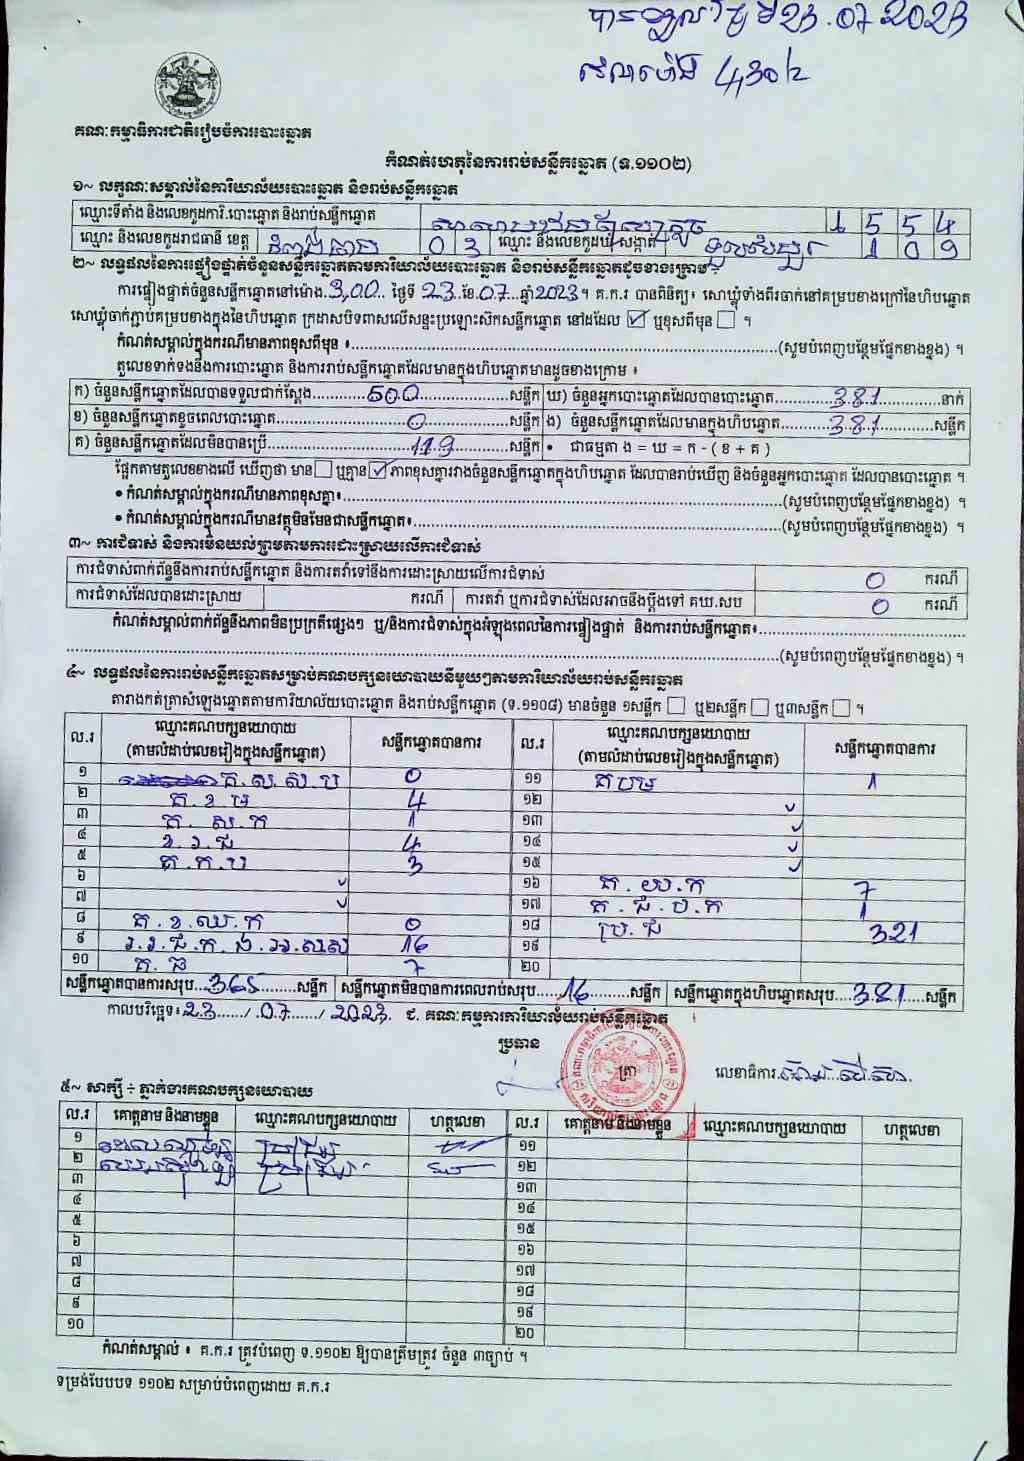 23.07.2023
4,30
គណៈកម្មាធិការជាតិរៀបចំការបោះឆ្នោត
កំណត់ហេតុនៃការរាប់សន្លឹកឆ្នោត (ទ.១១០២)
១~ លក្ខណៈសម្គាល់នៃការិយាល័យបោះឆ្នោត និងរាប់សន្លឹកឆ្នោត
ឈ្មោះទីតាំង និងលេខកូដការិ.បោះឆ្នោត និងរាប់សន្លឹកឆ្នោត 1 5 5 4
ឈ្មោះ និងលេខកូដរាជធានី ខេត្ត កំពង់ចាម 0 3 ឈ្មោះ និងលេខកូដឃុំ សង្កាត់ 1 0 9
២~ លទ្ធផលនៃការផ្ទៀងផ្ទាត់ចំនួនសន្លឹកឆ្នោតតាមការិយាល័យបោះឆ្នោត និងរាប់សន្លឹកឆ្នោតដូចខាងក្រោម ÷
ការផ្ទៀងផ្ទាត់ចំនួនសន្លឹកឆ្នោតនៅម៉ោង 3,00 ថ្ងៃទី 23 ខែ 07 ឆ្នាំ 2023 ។ គ.ក.រ បានពិនិត្យ៖ សោឃ្លុំទាំងពីរចាក់នៅគម្របខាងក្រៅនៃហិបឆ្នោត
សោឃ្លុំចាក់ភ្ជាប់គម្របខាងក្នុងនៃហិបឆ្នោត ក្រដាសបិទពាសលើសន្ទះប្រឡោះស៊កសន្លឹកឆ្នោត នៅដដែល ☑ ឬខុសពីមុន ☐ ។
កំណត់សម្គាល់ក្នុងករណីមានភាពខុសពីមុន ៖ (សូមបំពេញបន្ថែមផ្នែកខាងខ្នង) ។
តួលេខទាក់ទងនឹងការបោះឆ្នោត និងការរាប់សន្លឹកឆ្នោតដែលមានក្នុងហិបឆ្នោតមានដូចខាងក្រោម ៖
ក) ចំនួនសន្លឹកឆ្នោតដែលបានទទួលជាក់ស្តែង 500 សន្លឹក ឃ) ចំនួនអ្នកបោះឆ្នោតដែលបានបោះឆ្នោត 381 នាក់
ខ) ចំនួនសន្លឹកឆ្នោតខូចពេលបោះឆ្នោត 0 សន្លឹក ង) ចំនួនសន្លឹកឆ្នោតដែលមានក្នុងហិបឆ្នោត 381 សន្លឹក
គ) ចំនួនសន្លឹកឆ្នោតដែលមិនបានប្រើ 119 សន្លឹក • ជាធម្មតា ង = ឃ = ក - ( ខ + គ )
ផ្អែកតាមតួលេខខាងលើ ឃើញថា មាន ☐ ឬគ្មាន ☑ ភាពខុសគ្នារវាងចំនួនសន្លឹកឆ្នោតក្នុងហិបឆ្នោត ដែលបានរាប់ឃើញ និងចំនួនអ្នកបោះឆ្នោត ដែលបានបោះឆ្នោត ។
• កំណត់សម្គាល់ក្នុងករណីមានភាពខុសគ្នា៖ (សូមបំពេញបន្ថែមផ្នែកខាងខ្នង) ។
• កំណត់សម្គាល់ក្នុងករណីមានវត្ថុមិនមែនជាសន្លឹកឆ្នោត៖ (សូមបំពេញបន្ថែមផ្នែកខាងខ្នង) ។
៣~ ការជំទាស់ និងការមិនយល់ព្រមតាមការដោះស្រាយលើការជំទាស់
ការជំទាស់ពាក់ព័ន្ធនឹងការរាប់សន្លឹកឆ្នោត និងការតវ៉ាទៅនឹងការដោះស្រាយលើការជំទាស់ 0 ករណី
ការជំទាស់ដែលបានដោះស្រាយ ករណី ការតវ៉ា ឬការជំទាស់ដែលអាចនឹងប្តឹងទៅ គឃ.សប 0 ករណី
កំណត់សម្គាល់ពាក់ព័ន្ធនឹងភាពមិនប្រក្រតីផ្សេងៗ ឬ/និងការជំទាស់ក្នុងអំឡុងពេលនៃការផ្ទៀងផ្ទាត់ និងការរាប់សន្លឹកឆ្នោត៖
(សូមបំពេញបន្ថែមផ្នែកខាងខ្នង) ។
៤~ លទ្ធផលនៃការរាប់សន្លឹកឆ្នោតសម្រាប់គណបក្សនយោបាយនីមួយៗតាមការិយាល័យរាប់សន្លឹកឆ្នោត
តារាងកត់ត្រាសំឡេងឆ្នោតតាមការិយាល័យបោះឆ្នោត និងរាប់សន្លឹកឆ្នោត (ទ.១១០៨) មានចំនួន ១សន្លឹក ☐ ឬ២សន្លឹក ☐ ឬ៣សន្លឹក ☐ ។
ល.រ ឈ្មោះគណបក្សនយោបាយ (តាមលំដាប់លេខរៀងក្នុងសន្លឹកឆ្នោត) សន្លឹកឆ្នោតបានការ ល.រ ឈ្មោះគណបក្សនយោបាយ (តាមលំដាប់លេខរៀងក្នុងសន្លឹកឆ្នោត) សន្លឹកឆ្នោតបានការ
១ គ.ស.ស.ប 0 ១១ គបម 1
២ គ.ខ.ម 4 ១២
៣ គ.ស.ក 1 ១៣
៤ ខ.រ.ជ 4 ១៤
៥ គ.ក.ប 3 ១៥
៦ ១៦ គ.យ.ក 7
៧ ១៧ គ.ជ.ប.ក 1
៨ គ.ខ.ឈ.ក 0 ១៨ ប្រ.ជ 321
៩ 16 ១៩
១០ គ.ធ 7 ២០
សន្លឹកឆ្នោតបានការសរុប 365 សន្លឹក សន្លឹកឆ្នោតមិនបានការពេលរាប់សរុប 16 សន្លឹក សន្លឹកឆ្នោតក្នុងហិបឆ្នោតសរុប 381 សន្លឹក
កាលបរិច្ឆេទ៖ 23 / 07 / 2023 ជ. គណៈកម្មការការិយាល័យរាប់សន្លឹកឆ្នោត
ប្រធាន ត្រា លេខាធិការ
៥~ សាក្សី ÷ ភ្នាក់ងារគណបក្សនយោបាយ
ល.រ គោត្តនាម និងនាមខ្លួន ឈ្មោះគណបក្សនយោបាយ ហត្ថលេខា ល.រ គោត្តនាម និងនាមខ្លួន ឈ្មោះគណបក្សនយោបាយ ហត្ថលេខា
១ ១១
២ ១២
៣ ១៣
៤ ១៤
៥ ១៥
៦ ១៦
៧ ១៧
៨ ១៨
៩ ១៩
១០ ២០
កំណត់សម្គាល់ ៖ គ.ក.រ ត្រូវបំពេញ ទ.១១០២ ឱ្យបានត្រឹមត្រូវ ចំនួន ៣ច្បាប់ ។
ទម្រង់បែបបទ ១១០២ សម្រាប់បំពេញដោយ គ.ក.រ